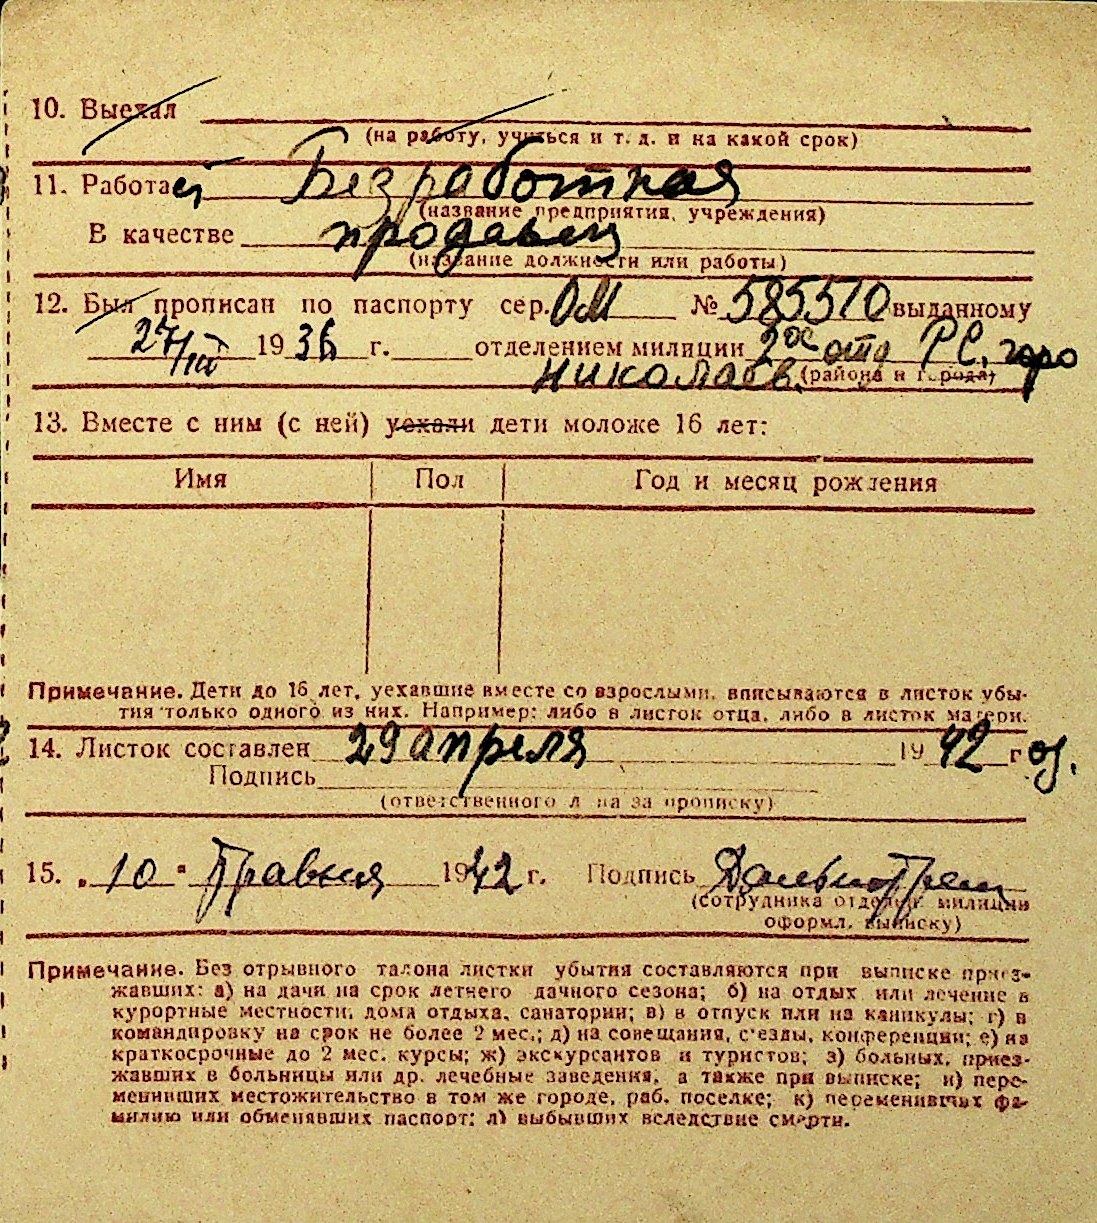 10. Выехал
(на работу, учиться и т. д. и на какой срок)
11. Работа Безработная
(название предприятия, учреждения)
В качестве продавец
(название должности или работы)
12. Был прописан по паспорту сер. ОМ № 585510 выданному
27/III 1936 г. отделением милиции 2ое отд РС. горо
николаев. (района и города)
13. Вместе с ним (с ней) уехали дети моложе 16 лет:
Имя Пол Год и месяц рождения
Примечание. Дети до 16 лет, уехавшие вместе со взрослыми, вписываются в листок убы-
тия только одного из них. Например: либо в листок отца, либо в листок матери.
14. Листок составлен 29 апреля 1942 г
Подпись
(ответственного лица за прописку)
15. „10" Травня 1942 г. Подпись
(сотрудника отделен. милиции
оформл. выписку)
Примечание. Без отрывного талона листки убытия составляются при выписке приез-
жавших: а) на дачи на срок летнего дачного сезона; б) на отдых или лечение в
курортные местности, дома отдыха, санатории; в) в отпуск или на каникулы; г) в
командировку на срок не более 2 мес.; д) на совещания, с'езды, конференции; е) на
краткосрочные до 2 мес. курсы; ж) экскурсантов и туристов; з) больных, приез-
жавших в больницы или др. лечебные заведения, а также при выписке; и) пере-
менивших местожительство в том же городе, раб. поселке; к) переменивших фа-
милию или обменявших паспорт; л) выбывших вследствие смерти.